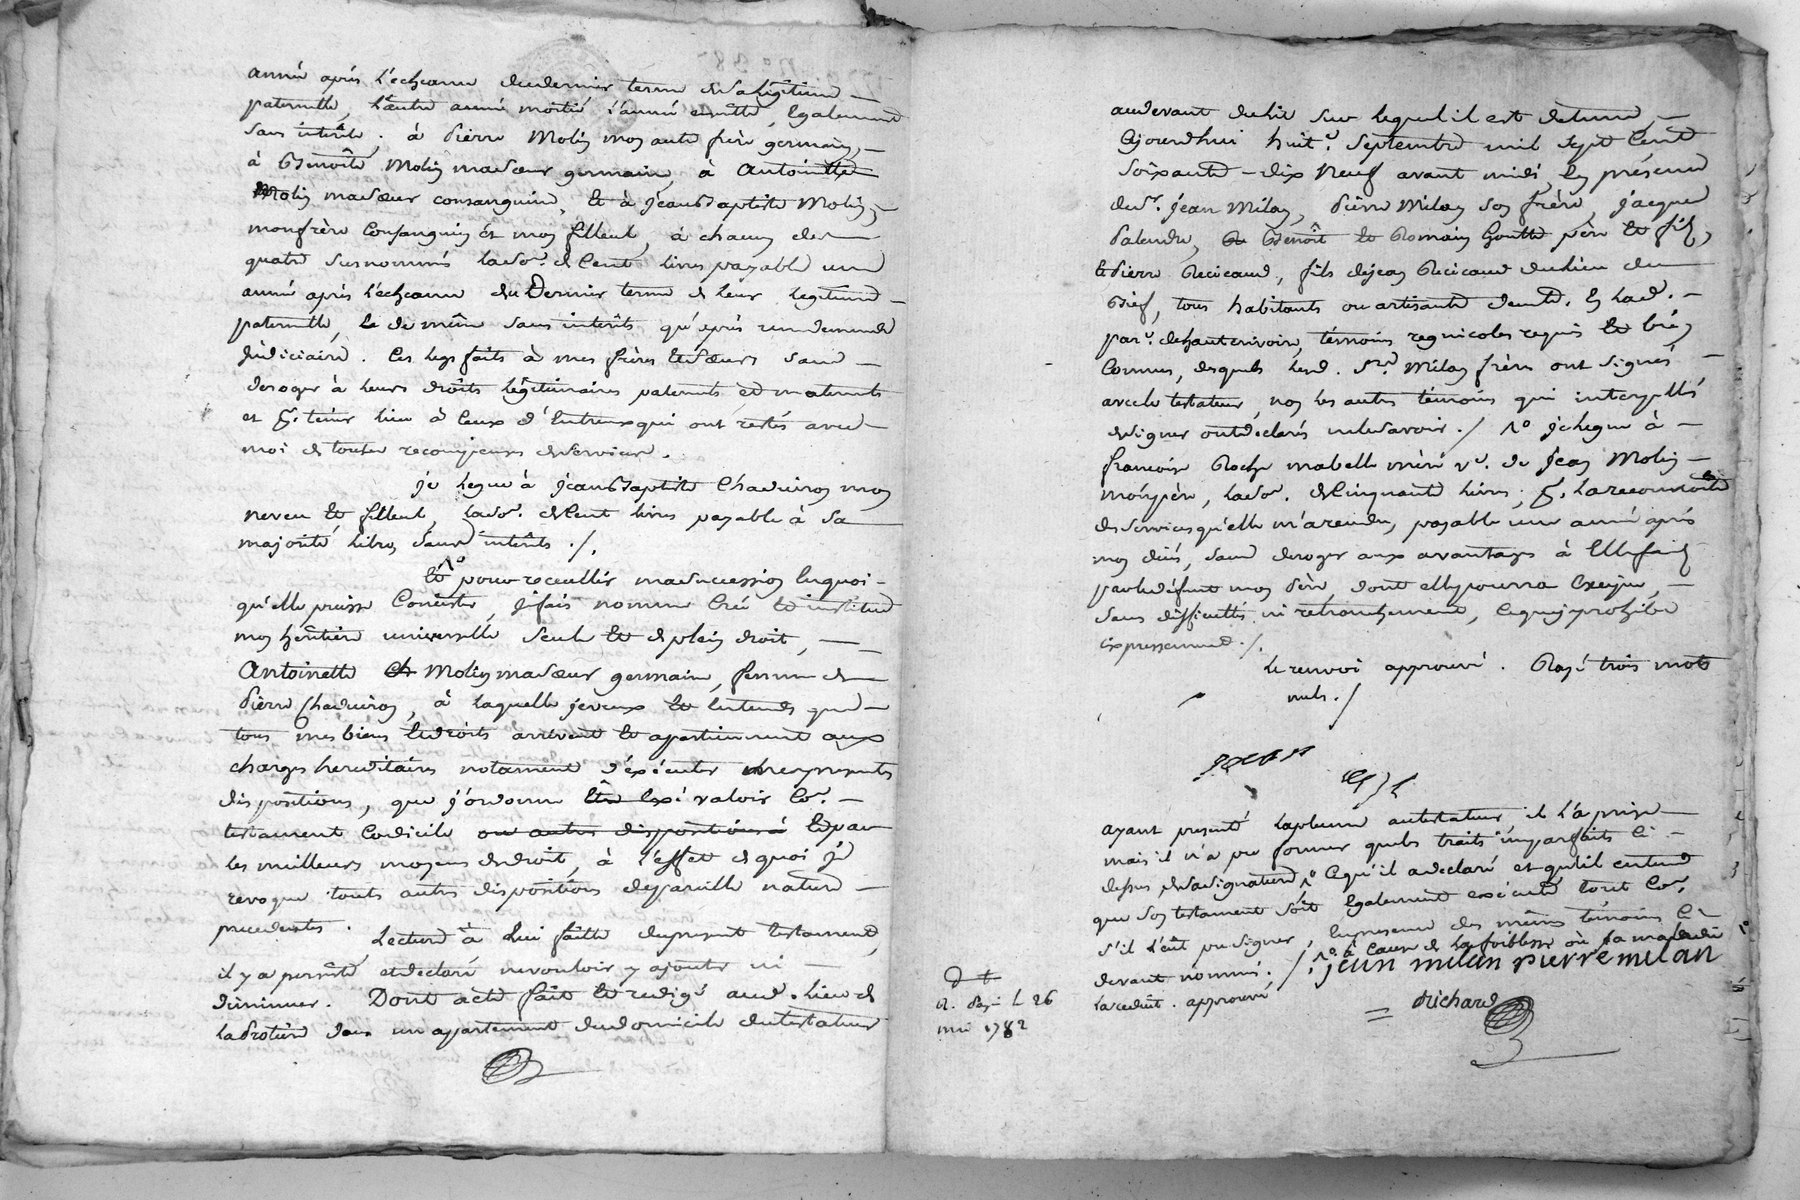 année après l'echeance dudernier terme de sa légitime
paternelle, l'autre année moitié l'année ensuitte, Egalement
sans interêts. à pierre Molin mon autre frère germain,
à Benoîte Molin masœur germaine, à Antoinette
Molin masœur consanguine, et à jeanBaptiste Molin,
monfrère Consanguin et mon filleul, à chacun des
quatre susnommés lasoe. de Cent livres payable une
année après l'echeance du Dernier terme de leur legitime
paternelle, et de même sans interêts qu'après une demande
judiciaire. Ces legs faits à mes frères et sœurs sans
deroger à leurs droits légitimaires paternels et maternels
et p. tenir lieu à Ceux d'Entreux qui ont restés avec
moi de toutes recompenses de services.
je legue à jeanBaptiste Chadeiron mon
neveu et filleul, lasoe. de Cent livres payable à sa
majorité, sans interêts ./.
Et pour recueillir masuccession en quoi
qu'elle puisse Consister, j'ai fais nomme Créé et institué
mon héritière universelle seule et de plein droit,
Antoinette Ch Molin masœur germaine, femme de
pierre Chadeiron, à laquelle je veux et Entends que
tous mes biens et droits arrivent et apartiennent aux
charges hereditaires notament d'éxécuter mes presentes
dispositions, que j'ordonne valoir Coe.
testament Codicile ou autres dispositions à et par
les meilleurs moyens de droit, à l'effet de quoi je
revoque toutes autres dispositions de pareille nature
precedentes. Lecture à Lui faitte du present testament,
il y a persisté et declaré ne vouloir y ajouter ni
diminuer. Dont acte fait et redigé aud. lieu de
la dans un apartement du domicile du testateur
audevant du lit sur lequel il est detenu,
Cejourdhui huite. septembre mil sept Cent
soixante-dix neuf avant midi En présence
de sr. jean Milan, pierre Milan son frère, jacque
palandre, Benoît et Romain Goutte père et fils,
et pierre Recicaud, fils de jean Recicaud du lieu du
Bief, tous habitants ou artisants
par. de hauterivoire, témoins regnicoles requis et bién
Connus, desquels lesd. srs. Milan frères ont signés
avec le testateur, non les autres témoins qui interpellés
de signer ont declarés ne le savoir ./ 1o je legue à
francoise Roche ma belle mère ve. de jean Molin
mon père, lasoe. de Cinquante livres, p. la reconnoitre
des services qu'elle m'a rendu, payable une année après
mon décès, sans deroger aux avantages à Elle faits
par le défunt mon père, dont elle pourra Exeiger
sans difficultés ni retranchement, ce que je prohibe
expressement ./.
le renvoi approuvé. Rayé trois mots
nuls ./
ayant presenté la plume au testateur il l'a prise
mais il n'a pu former que les traits imparfaits Ci-
dessus de sa signature, 1o Ce qu'il a declaré et qu'il entend
que son testament sôit Egalement exécuté tout Coe.
s'il l'eût pu signer, En presence des mêmes témoins Ci-
devant nommés. / 1o à Cause de la foiblesse où sa maladie
la reduit. approuvé
jean milan pierre milan
Richard
26
1782